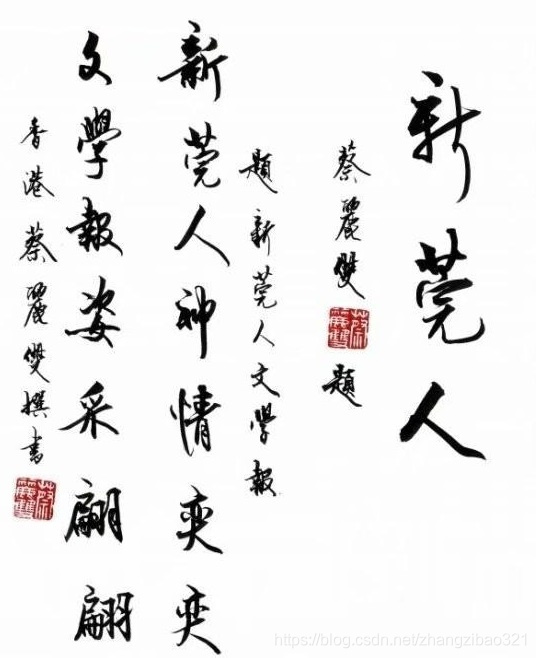 新莞人
蔡麗雙
蔡麗雙
題
題新莞人文學報
新莞人神情奕奕
文學報姿采翩翩
香港蔡麗雙撰書
蔡麗雙
https://blog.csdn.net/zhangzibao321